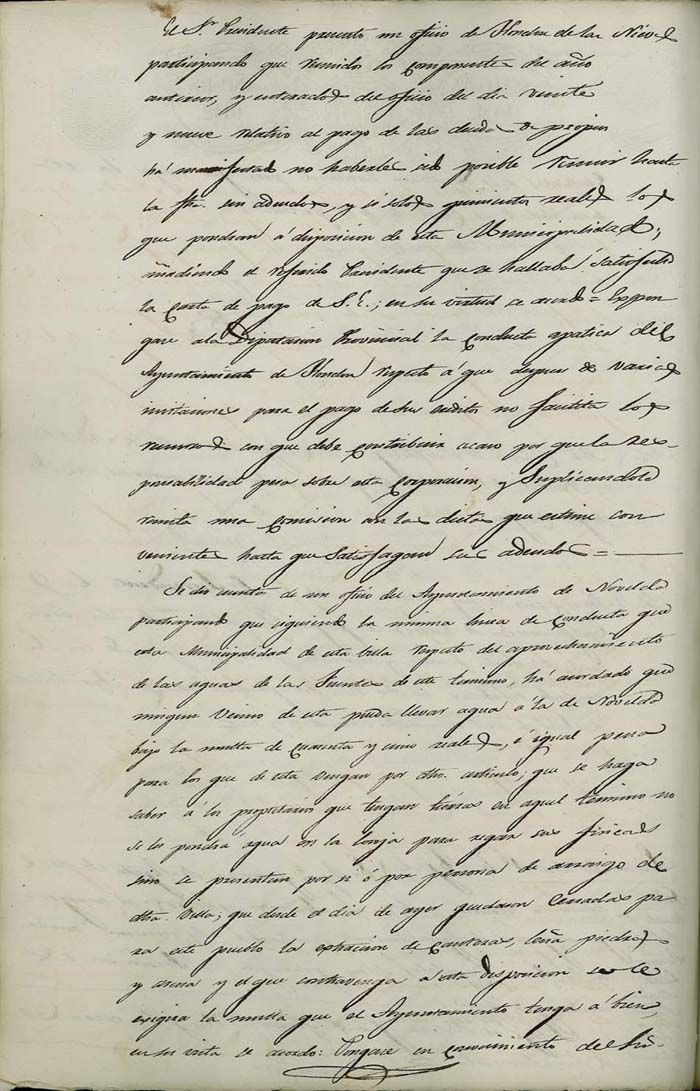 El Sr. Presidente presentó un oficio de Hondon de las Nieves
participando que reunidos los componentes del año
anterior, y enterados del oficio del dia veinte
y nueve relativo al pago de las deudas de propios
há manifestado no haberles sido posible reunir hasta
la fha. sin adeudos, y si solos quinientos reales los
que pondran á disposicion de esta Municipalidad;
añadiendo el referido Presidente que se hallaba satisfecho
la Carta de pago de S. E.; en su virtud se acordó = Expon
gase a la Diputacion Provincial la conducta apatica del
Ayuntamiento de Hondon respecto á que despues de varias
invitaciones para el pago de sus creditos no facilita los
recursos con que debe contribuir acaso por que la res-
ponsabilidad pesa sobre esta Corporacion, y Suplicandole
remita una comision con las dietas que estime con
veniente hasta que Satisfagan sus adeudos =
Se dio cuenta de un oficio del Ayuntamiento de Novelda
participando que siguiendo la misma linea de conducta que
esta Municipalidad de esta villa respeto del aprovechamiento
de las aguas de las Fuentes de este termino, há acordado que
ningun Vecino de esta pueda llevar agua á la de Novelda
bajo la multa de cuarenta y cinco reales, é igual pena
para los que de esta vengan por dho. articulo; que se haga
saber á los propietarios que tengan tierras en aquel término no
se les pondrá agua en la lonja para regar sus fincas
sino se presentan por si ó por persona de arraigo de
dha. Villa; que desde el dia de ayer quedaron Cerradas pa
ra este pueblo la extraccion de canteras, leña piedras
y arena y el que contravenga á esta disposicion se le
exigira la multa que el Ayuntamiento tenga á bien,
en su vista se acordó: Pongase en conocimiento del Sr.